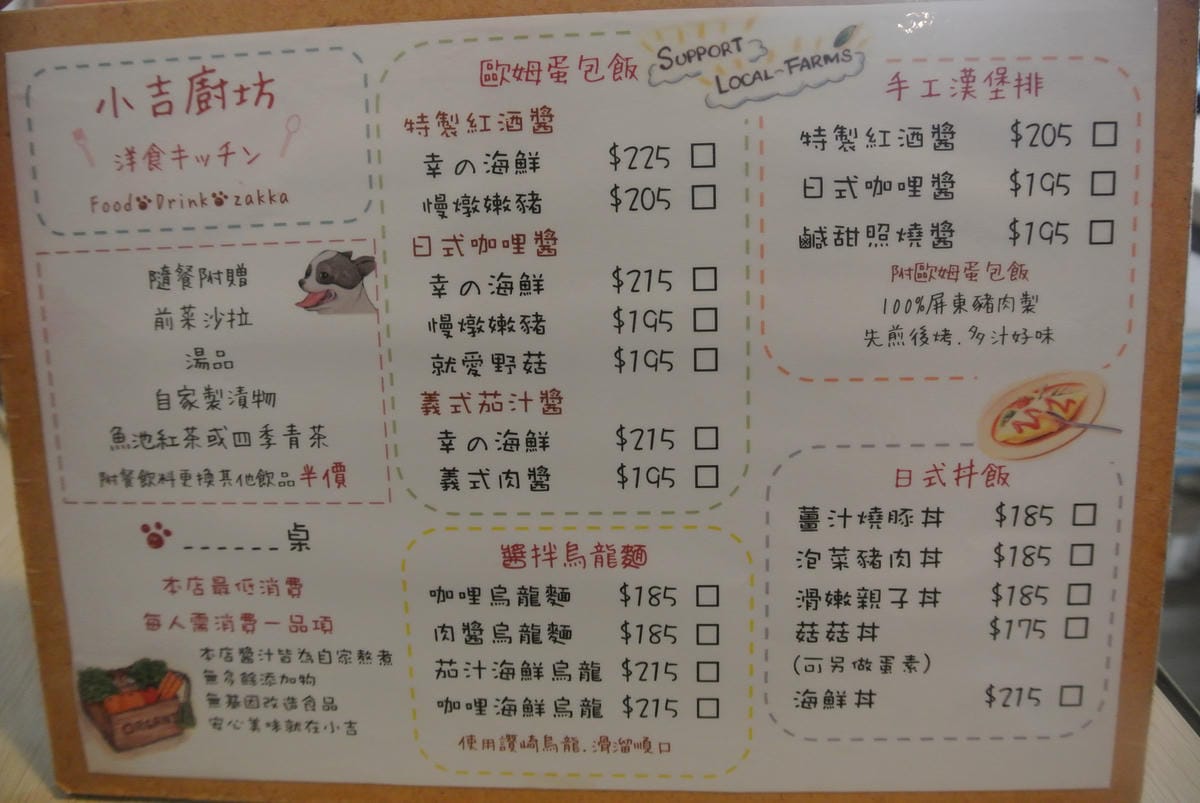 小吉廚坊
洋食キッチン
Food Drink zakka
隨餐附贈
前菜沙拉
湯品
自家製漬物
魚池紅茶或四季青茶
附餐飲料更換其他飲品半價
______桌
本店最低消費
每人需消費一品項
本店醬汁皆為自家熬煮
無多餘添加物
無基因改造食品
安心美味就在小吉
ORGANIC
歐姆蛋包飯
SUPPORT
LOCAL-FARMS
特製紅酒醬
幸の海鮮 $225 □
慢燉嫩豬 $205 □
日式咖哩醬
幸の海鮮 $215 □
慢燉嫩豬 $195 □
就愛野菇 $195 □
義式茄汁醬
幸の海鮮 $215 □
義式肉醬 $195 □
醬拌烏龍麵
咖哩烏龍麵 $185 □
肉醬烏龍麵 $185 □
茄汁海鮮烏龍 $215 □
咖哩海鮮烏龍 $215 □
使用讚崎烏龍.滑溜順口
手工漢堡排
特製紅酒醬 $205 □
日式咖哩醬 $195 □
鹹甜照燒醬 $195 □
附歐姆蛋包飯
100%屏東豬肉製
先煎後烤.多汁好味
日式丼飯
薑汁燒豚丼 $185 □
泡菜豬肉丼 $185 □
滑嫩親子丼 $185 □
菇菇丼 $175 □
(可另做蛋素)
海鮮丼 $215 □